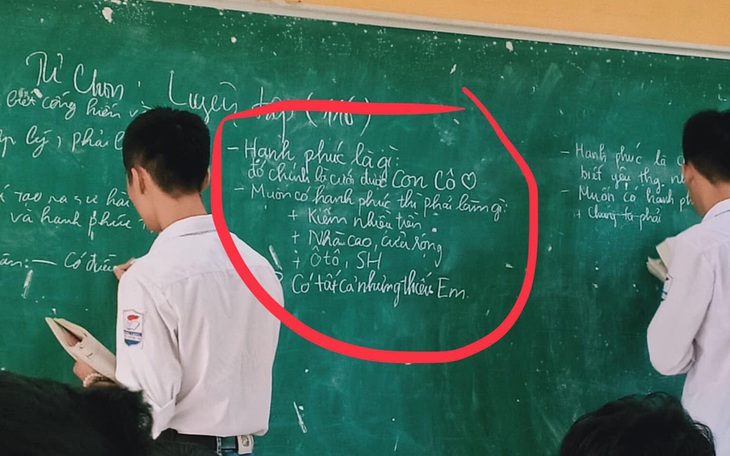 Tự Chọn: Luyện tập (116)
biết cống hiến và
lý, phải
tạo ra sự hà
và hạnh phúc
- Có
- Hạnh phúc là gì:
đó chính là cưới được Con Cô ♡
- Muốn có hạnh phúc thì phải làm gì:
+ Kiếm nhiều tiền
+ Nhà cao, cửa rộng
+ Ô tô, SH
Có tất cả nhưng thiếu Em
- Hạnh phúc là
biết yêu thg,
- Muốn có hạnh ph
+ Chúng ta phải